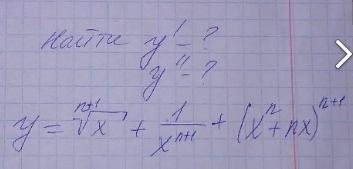 Найти y' - ?
y'' - ?
y = ⁿ⁺¹√x + 1/xⁿ⁺¹ + (xⁿ + nx)ⁿ⁺¹